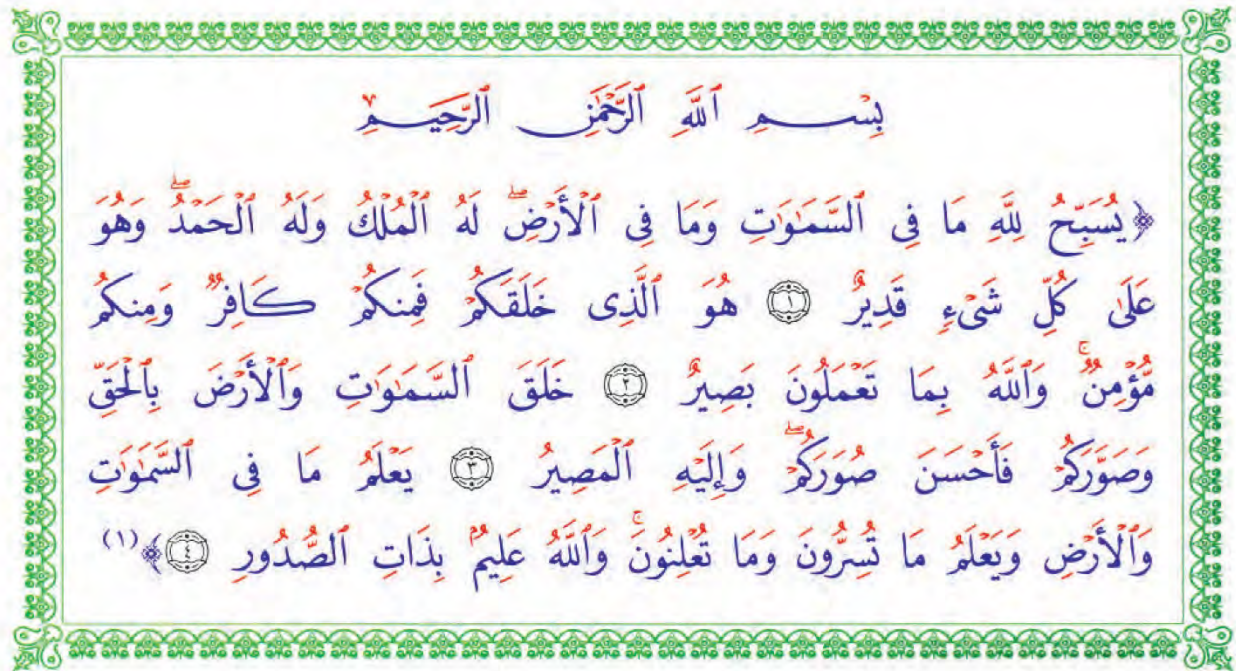 بِسْمِ ٱللَّهِ ٱلرَّحْمَٰنِ ٱلرَّحِيمِ
﴿يُسَبِّحُ لِلَّهِ مَا فِى ٱلسَّمَٰوَٰتِ وَمَا فِى ٱلْأَرْضِۖ لَهُ ٱلْمُلْكُ وَلَهُ ٱلْحَمْدُۖ وَهُوَ
عَلَىٰ كُلِّ شَىْءٍ قَدِيرٌ ۝١ هُوَ ٱلَّذِى خَلَقَكُمْ فَمِنكُمْ كَافِرٌ وَمِنكُم
مُّؤْمِنٌۚ وَٱللَّهُ بِمَا تَعْمَلُونَ بَصِيرٌ ۝٢ خَلَقَ ٱلسَّمَٰوَٰتِ وَٱلْأَرْضَ بِٱلْحَقِّ
وَصَوَّرَكُمْ فَأَحْسَنَ صُوَرَكُمْۖ وَإِلَيْهِ ٱلْمَصِيرُ ۝٣ يَعْلَمُ مَا فِى ٱلسَّمَٰوَٰتِ
وَٱلْأَرْضِ وَيَعْلَمُ مَا تُسِرُّونَ وَمَا تُعْلِنُونَۚ وَٱللَّهُ عَلِيمٌۢ بِذَاتِ ٱلصُّدُورِ ۝٤﴾(١)